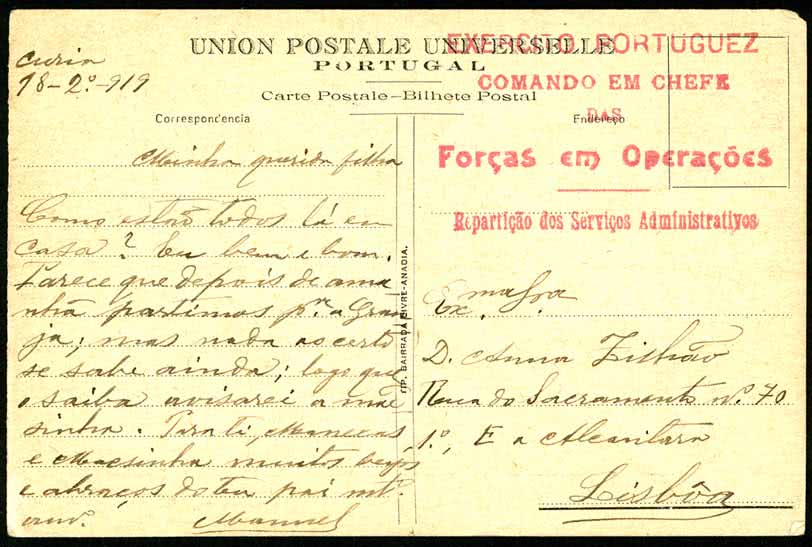 UNION POSTALE UNIVERSELLE
PORTUGAL
Carte Postale-Bilhete Postal
Correspondencia
Endereço
EXERCITO PORTUGUEZ
COMANDO EM CHEFE
DAS
Forças em Operações
Repartição dos Serviços Administrativos
Curia
18-2º-919
Minha querida filha
Como estão todos lá em
casa? Eu bem e bom.
Parece que depois de ama
nhã partimos pª a Gran
ja; mas nada ao certo
se sabe ainda; logo que
o saiba avisarei a mãe
sinha. Para ti, Manecas,
e Mãesinha muitos beijos
e abraços do teu pai mtº
amº.
Manuel
TIP. BAIRRADA LIVRE-ANADIA.
Ex.ma Sra
D. Anna Zilhão
Rua do Sacramento nº. 70
1.º, E a Alcantara
Lisbôa